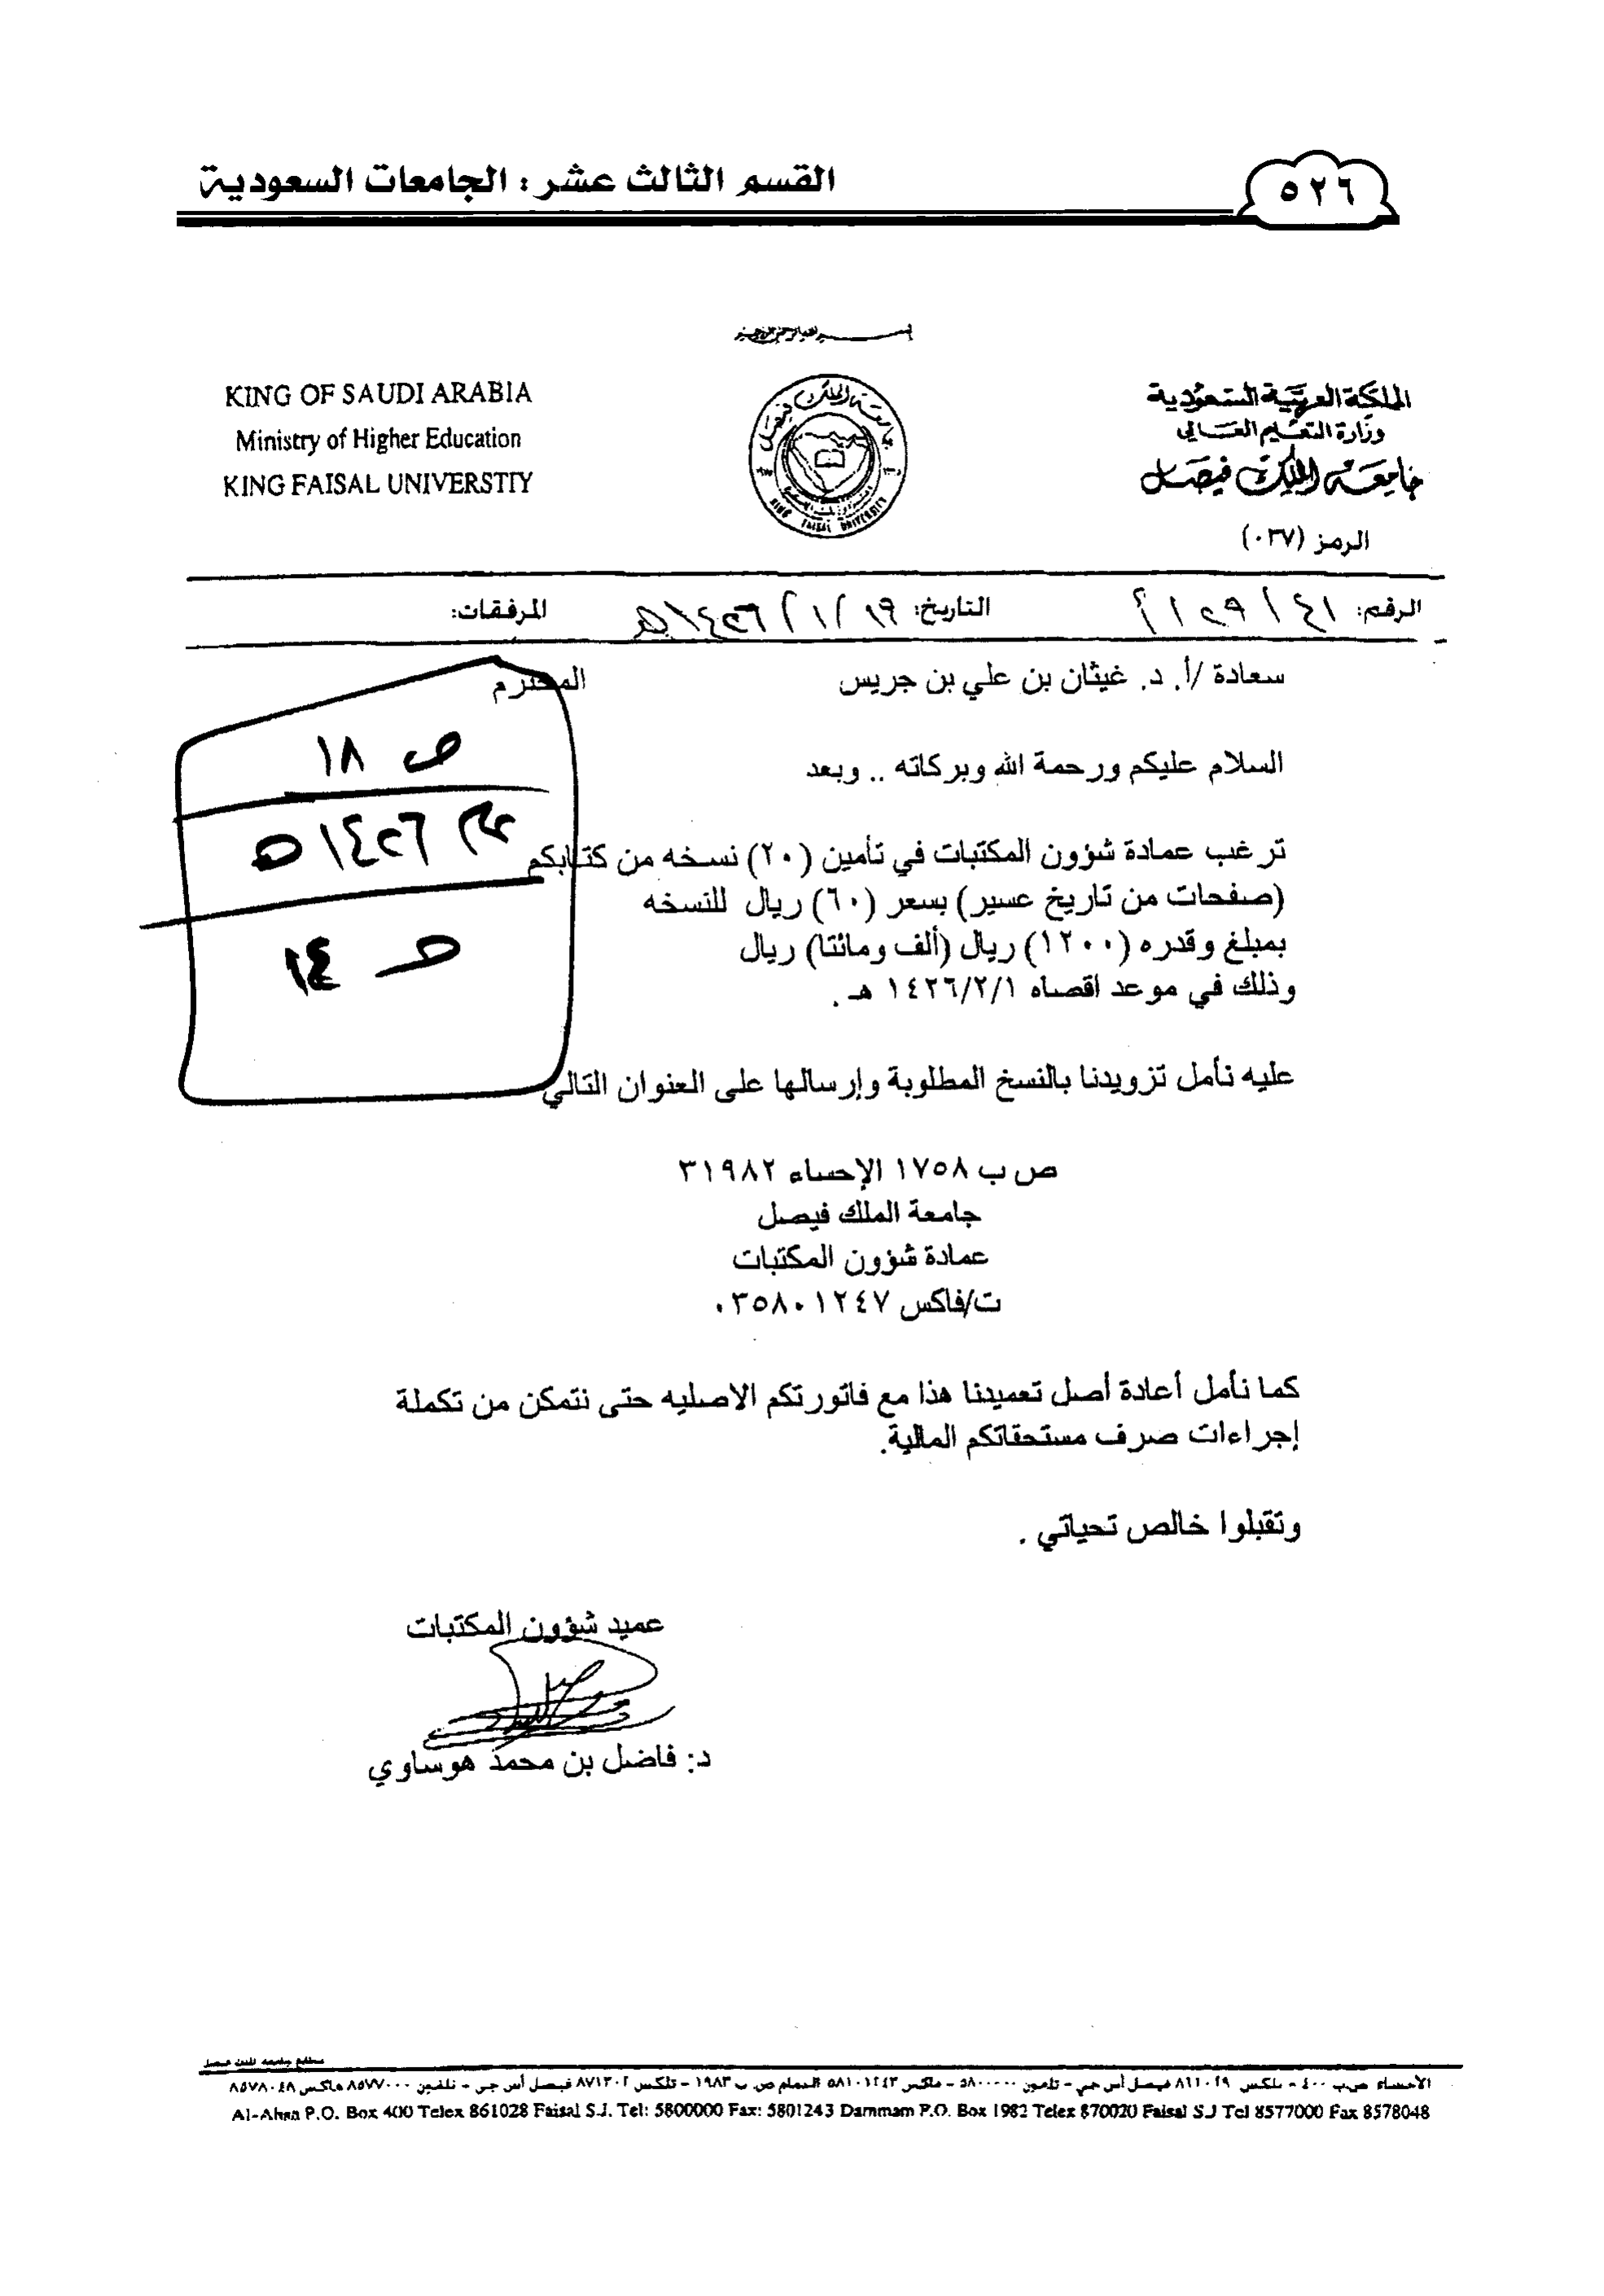 القسم الثالث عشر : الجامعات السعودية
٥٢٦
KING OF SAUDI ARABIA
Ministry of Higher Education
KING FAISAL UNIVERSTIY
المملكة العربية السعودية
وزارة التعليم العالي
جامعة الملك فيصل
الرمز (٠٣٧)
KING FAISAL UNIVERSITY
الرقم:
التاريخ: ١٩/١/١٤٢٦هـ
المرفقات:
سعادة /أ. د. غيثان بن علي بن جريس المحترم
السلام عليكم ورحمة الله وبركاته .. وبعد
ص ١٨
عام ١٤٢٦هـ
ترغب عمادة شؤون المكتبات في تأمين (٢٠) نسخه من كتابكم
(صفحات من تاريخ عسير) بسعر (٦٠) ريال للنسخه
بمبلغ وقدره (١٢٠٠) ريال (ألف ومائتا) ريال
وذلك في موعد اقصاه ١٤٢٦/٢/١ هـ .
عليه نأمل تزويدنا بالنسخ المطلوبة وإرسالها على العنوان التالي
ص ب ١٧٥٨ الإحساء ٣١٩٨٢
جامعة الملك فيصل
عمادة شؤون المكتبات
ت/فاكس ٠٣٥٨٠١٢٤٧
كما نأمل أعادة أصل تعميدنا هذا مع فاتورتكم الاصليه حتى نتمكن من تكملة
إجراءات صرف مستحقاتكم المالية.
وتقبلوا خالص تحياتي .
عميد شؤون المكتبات
د: فاضل بن محمد هوساوي
مطابع جامعة الملك فيصل
الأحساء ص.ب ٤٠٠ - تلكس ٨٦١٠٢٨ فيصل أس جي - تلفون ٥٨٠٠٠٠٠ - فاكس ٥٨٠١٢٤٣ الدمام ص.ب ١٩٨٢ - تلكس ٨٧٠٠٢٠ فيصل أس جي - تلفون ٨٥٧٧٠٠٠ فاكس ٨٥٧٨٠٤٨
Al-Ahsa P.O. Box 400 Telex 861028 Faisal S.J. Tel: 5800000 Fax: 5801243 Dammam P.O. Box 1982 Telex 870020 Faisal S.J Tel 8577000 Fax 8578048